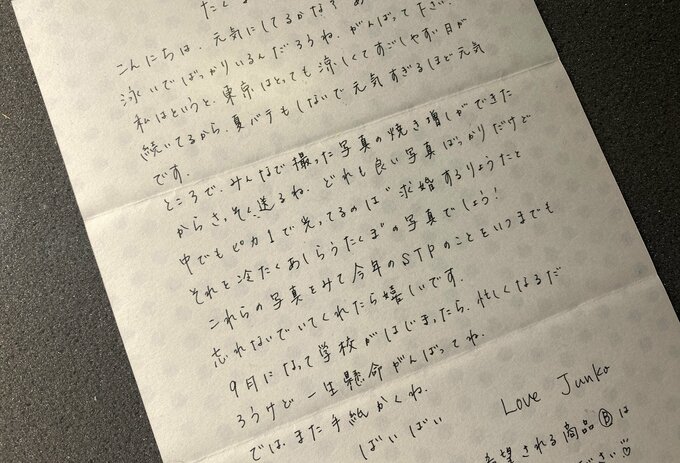 たくま
こんにちは、元気にしてるかな?あ
泳いでばっかりいるんだろうね、がんばって下さい。
私はというと、東京はとっても涼しくてすごしやすい日が
続いてるから、夏バテもしないで元気すぎるほど元気
です。
ところで、みんなで撮った写真の焼き増しができた
からさっそく送るね。どれも良い写真ばっかりだけど
中でもピカ1で光ってるのは“求婚するりょうたと
それを冷たくあしらうたくま”の写真でしょう!
これらの写真をみて今年のSTPのことをいつまでも
忘れないでいてくれたら嬉しいです。
9月になって学校がはじまったら、忙しくなるだ
ろうけど一生懸命がんばってね。
では、また手紙かくね。
ばいばい
Love Junko
希望される商品Ⓑは
ださい♡